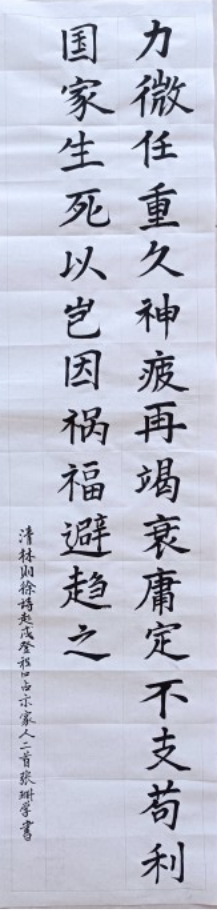 力微任重久神疲再竭衰庸定不支苟利
国家生死以岂因祸福避趋之
清林则徐诗赴戍登程口占示家人二首张珊学书